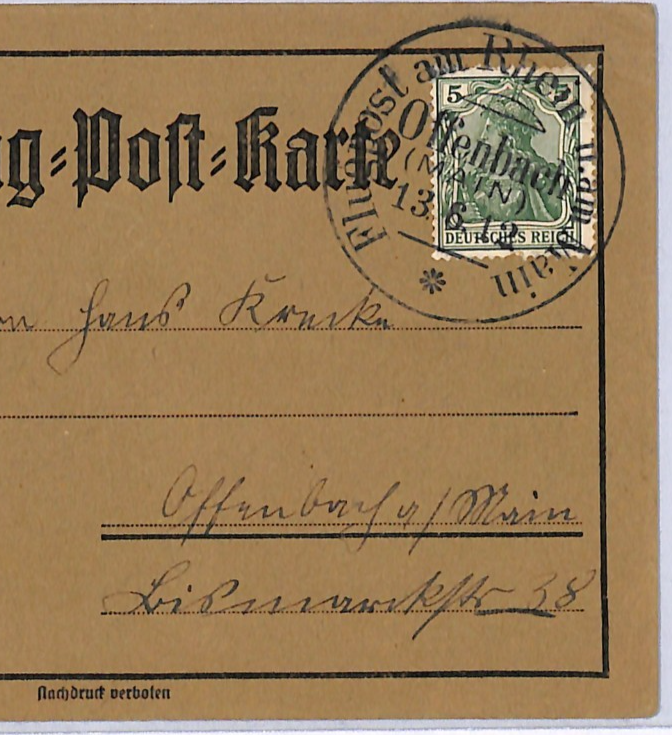 Flugpost am Rhein u. am Main
5
Offenbach
(MAIN)
13.6.12
DEUTSCHES REICH
g-Post-Karte
Hans Krecke
Offenbach a/Main
Bismarckstr 38
Nachdruck verboten